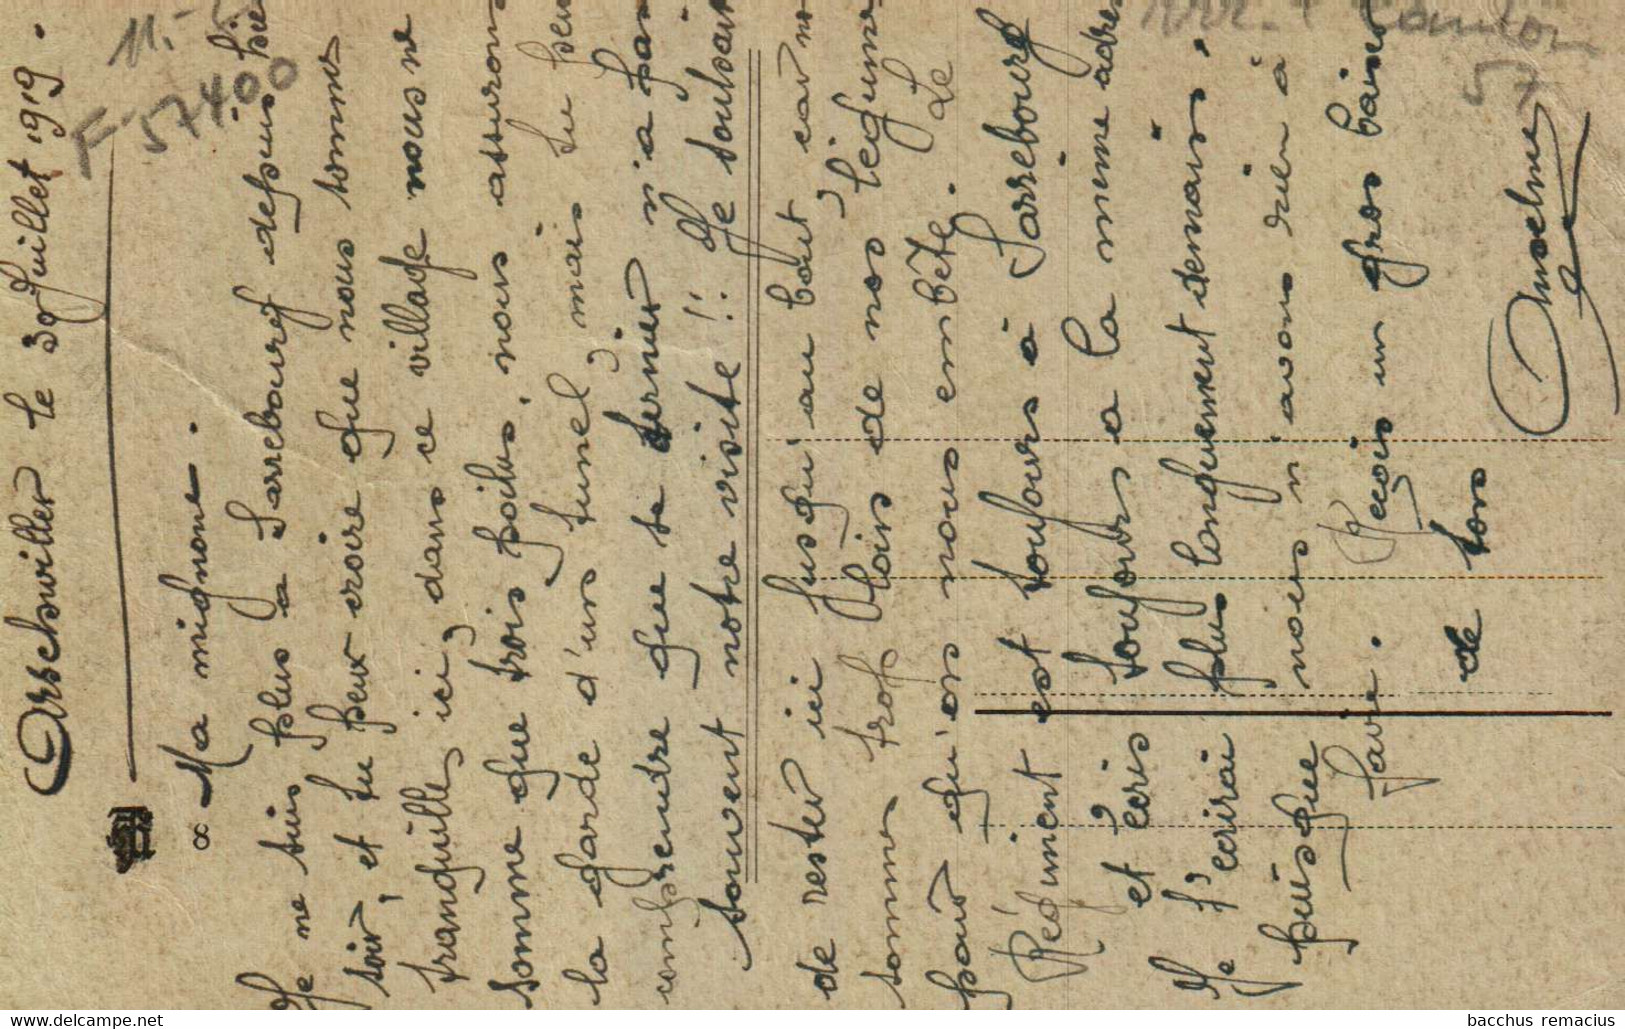 Arschwiller le 30 Juillet 1919.
Ma mignonne.
Je ne suis plus à Sarrebourg depuis hier
soir, et tu peux croire que nous sommes
tranquilles ici, dans ce village nous ne
somme que trois poilus, nous assurons
la garde d'un tunnel, mais tu peux
comprendre que se dernier n'a pas
souvent notre visite!! Je souhaite
de rester ici jusqu'au bout car nous
sommes trop loin de nos légumes
pour qu'on nous embête. Le
Régiment est toujours à Sarrebourg
et écris toujours a la même adresse
Je t'ecrirai plus longuement demain,
puisque nous n'avons rien à
faire. Reçois un gros baiser
de ton
Anselme
F-57400
11.-
Canton
57
bacchus remacius